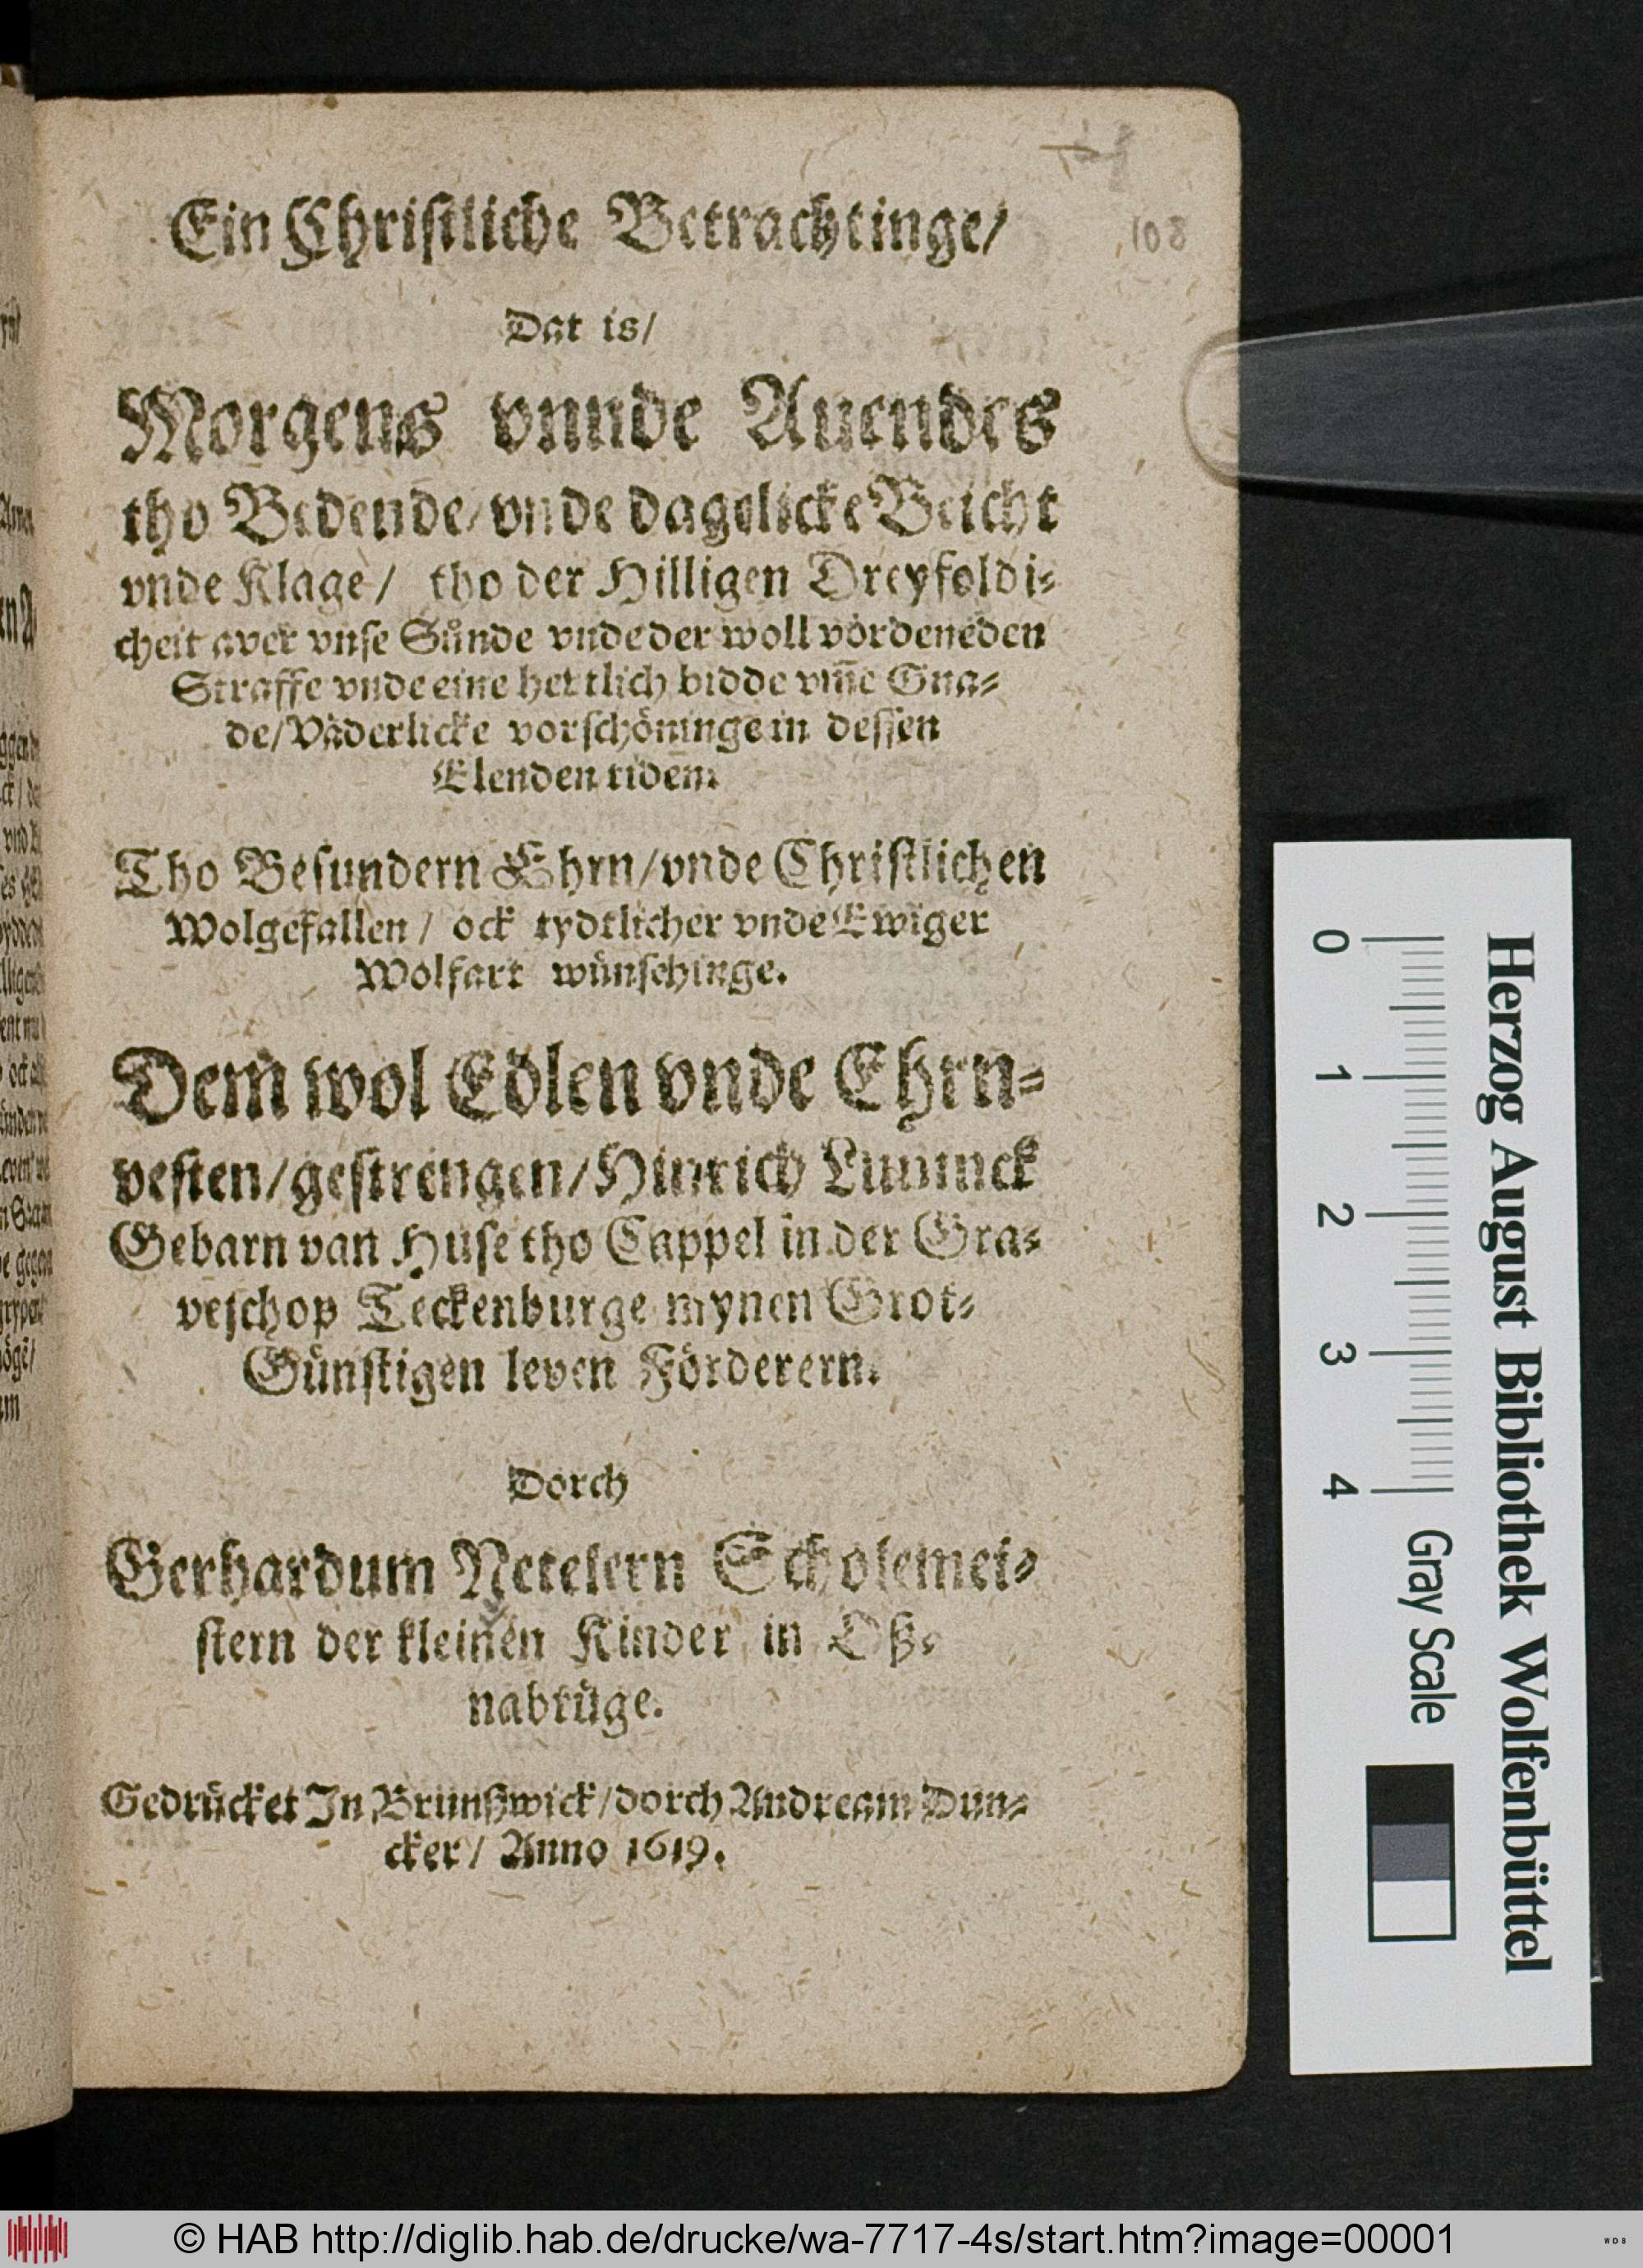 108
Ein Christliche Betrachtinge/
Dat is/
Morgens vnnde Auendes
tho Bedende/ vnde dagelicke Beicht
vnde Klage/ tho der Hilligen Dreyfoldi-
cheit aver vnse Sünde vnde der woll vordeneden
Straffe vnde eine hertlich bidde vm̄e Gna-
de/ Väderlicke vorschöninge in dessen
Elenden tiden.
Tho Besundern Ehrn/ vnde Christlichen
Wolgefallen/ ock tydtlicher vnde Ewiger
Wolfart wünschinge.
Dem wol Edlen vnde Ehrn-
vesten/ gestrengen/ Hinrich Luninck
Gebarn van Huse tho Cappel in der Gra-
veschop Teckenburge mynen Grot-
Günstigen leven Förderern.
Dorch
Gerhardum Netelern Scholemei-
stern der kleinen Kinder in Oß-
nabrüge.
Gedrücket In Brunßwick/ dorch Andream Dun-
cker/ Anno 1619.
Herzog August Bibliothek Wolfenbüttel
0 1 2 3 4 Gray Scale
© HAB http://diglib.hab.de/drucke/wa-7717-4s/start.htm?image=00001